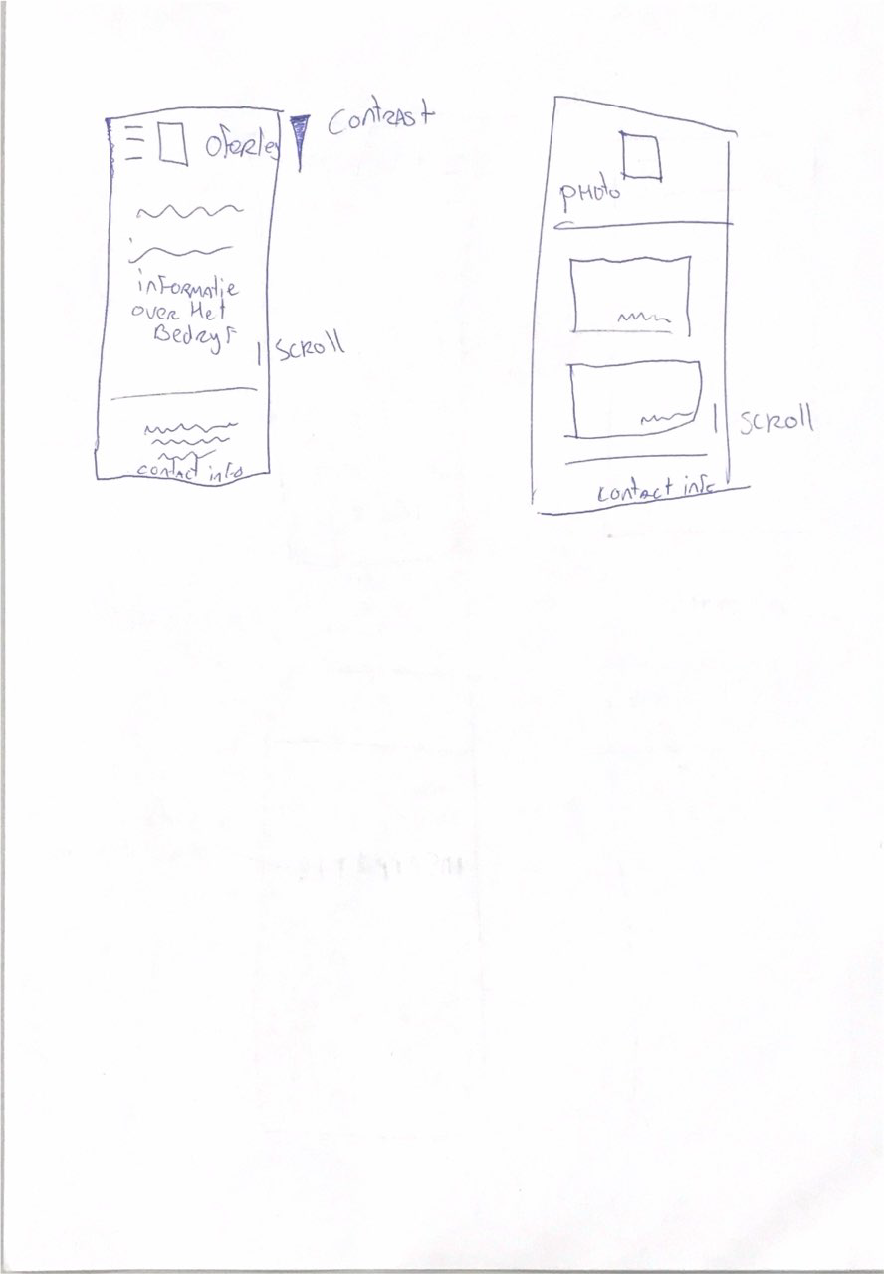 CONTRAST
informatie
over Het
Bedryf
SCROLL
contact info
PHOTO
SCROLL
contact info